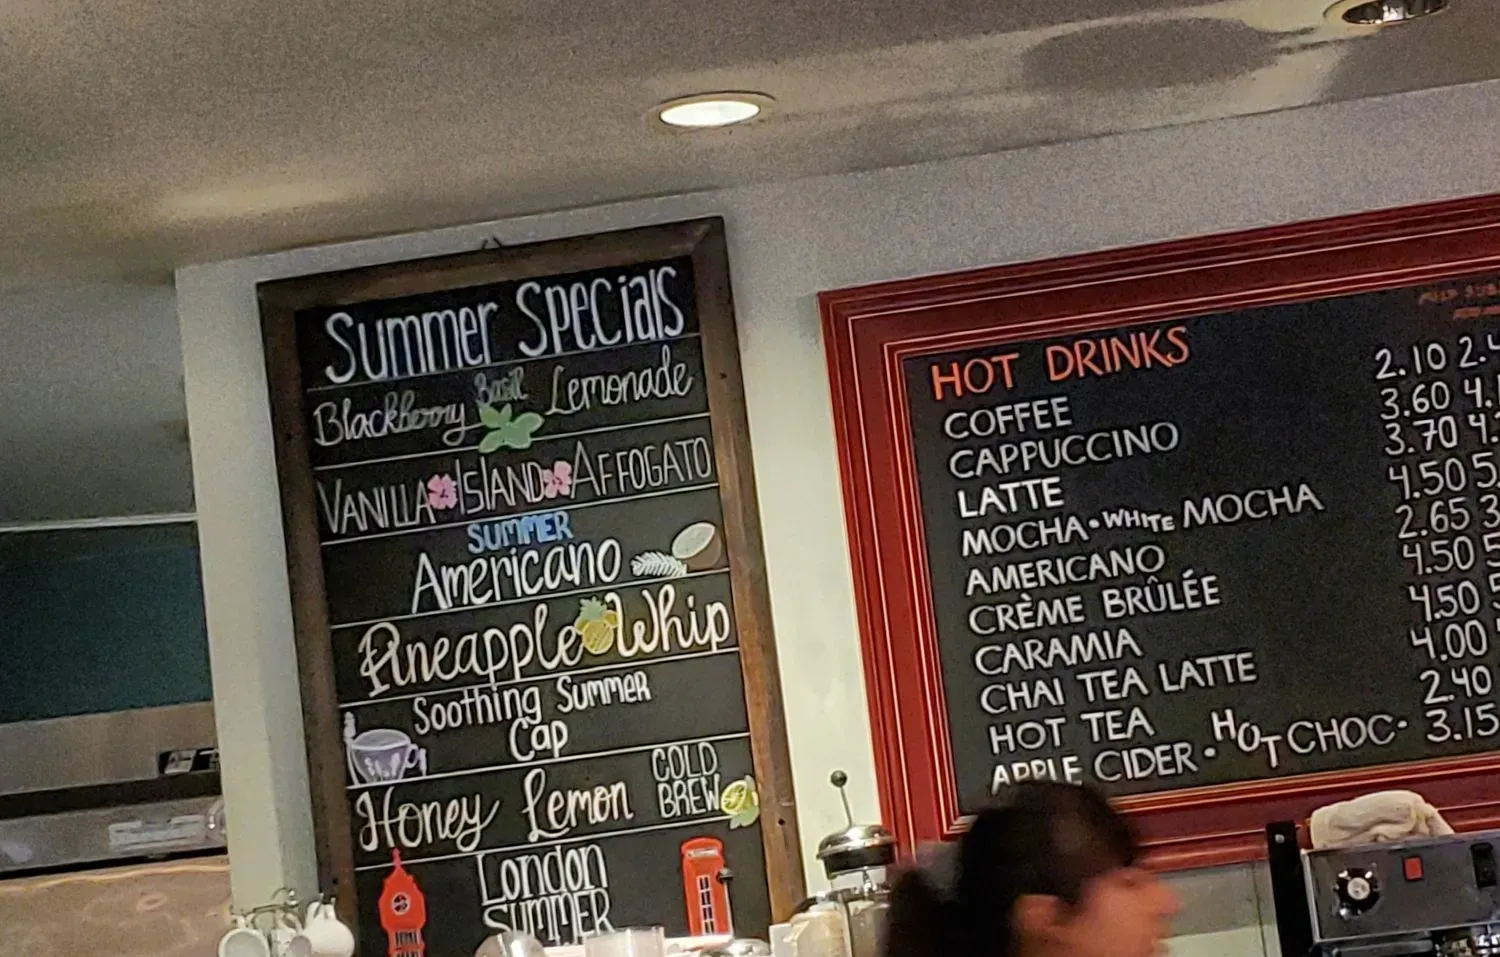 Summer Specials
Blackberry Basil Lemonade
VANILLA ISLAND AFFOGATO
SUMMER
Americano
Pineapple Whip
Soothing Summer
Cap
Honey Lemon COLD BREW
London
SUMMER
HOT DRINKS
COFFEE 2.10
CAPPUCCINO 3.60
LATTE 3.70
MOCHA • WHITE MOCHA 4.50
AMERICANO 2.65
CRÈME BRÛLÉE 4.50
CARAMIA 4.50
CHAI TEA LATTE 4.00
HOT TEA 2.40
APPLE CIDER • HOT CHOC • 3.15